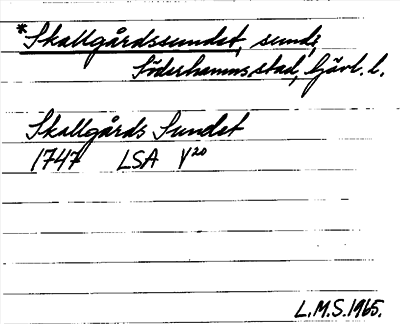 *Skallgårdssundet, sund,
Söderhamns stad, Gävl. l.
Skallgårds Sundet
1747 LSA V20
L.M.S. 1965.